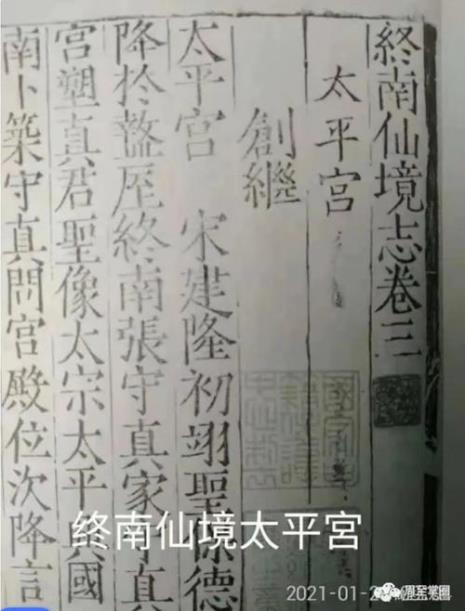 終南仙境志卷三
太平宫
創繼
太平宫 宋建隆初翊聖保德
降於盩厔終南張守真家 真
宫塑真君聖像太宗太平興國
南卜築守真問宫殿位次降言
终南仙境太平宫
2021-01-2
周至掌圈